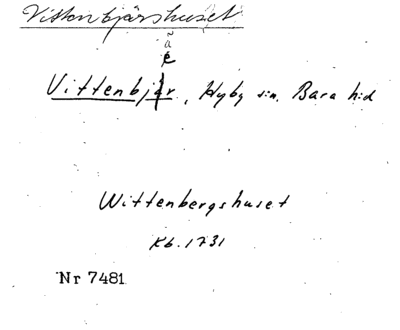 Vittenbjärshuset
ã
e
Vittenbjär, Hyby sn. Bara hd
Wittenbergshuset
Kb. 1731
Nr 7481